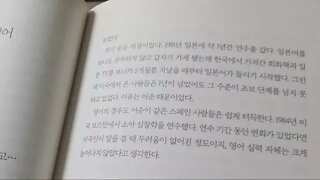 이어
고...
늘었다.
역시 유전 체질이었다. 1981년 일본에 약 1년간 연수를 갔다. 일본어를
하나도 공부하지 않고 갑자기 가게 됐는데 한국에서 가져간 회화책과 일
본 TV를 보니까 5개월쯤 지났을 때부터 일본어가 들리기 시작했다. 그런
데 미국에서 온 사람들은 1년이 넘었어도 그 수준이 초보 단계를 넘지 못
하고 있었다. 이유는 어순 때문이었다.
영어의 경우도 어순이 같은 스페인 사람들은 쉽게 터득한다. 1984년 미
국 보스턴에서 소아 심장학을 연수했다. 연수 기간 동안 변화가 있었다면
미국인이 말을 걸 때 두려움이 없어진 정도이지, 영어 실력 자체는 크게
늘어나지 않았다고 생각한다.